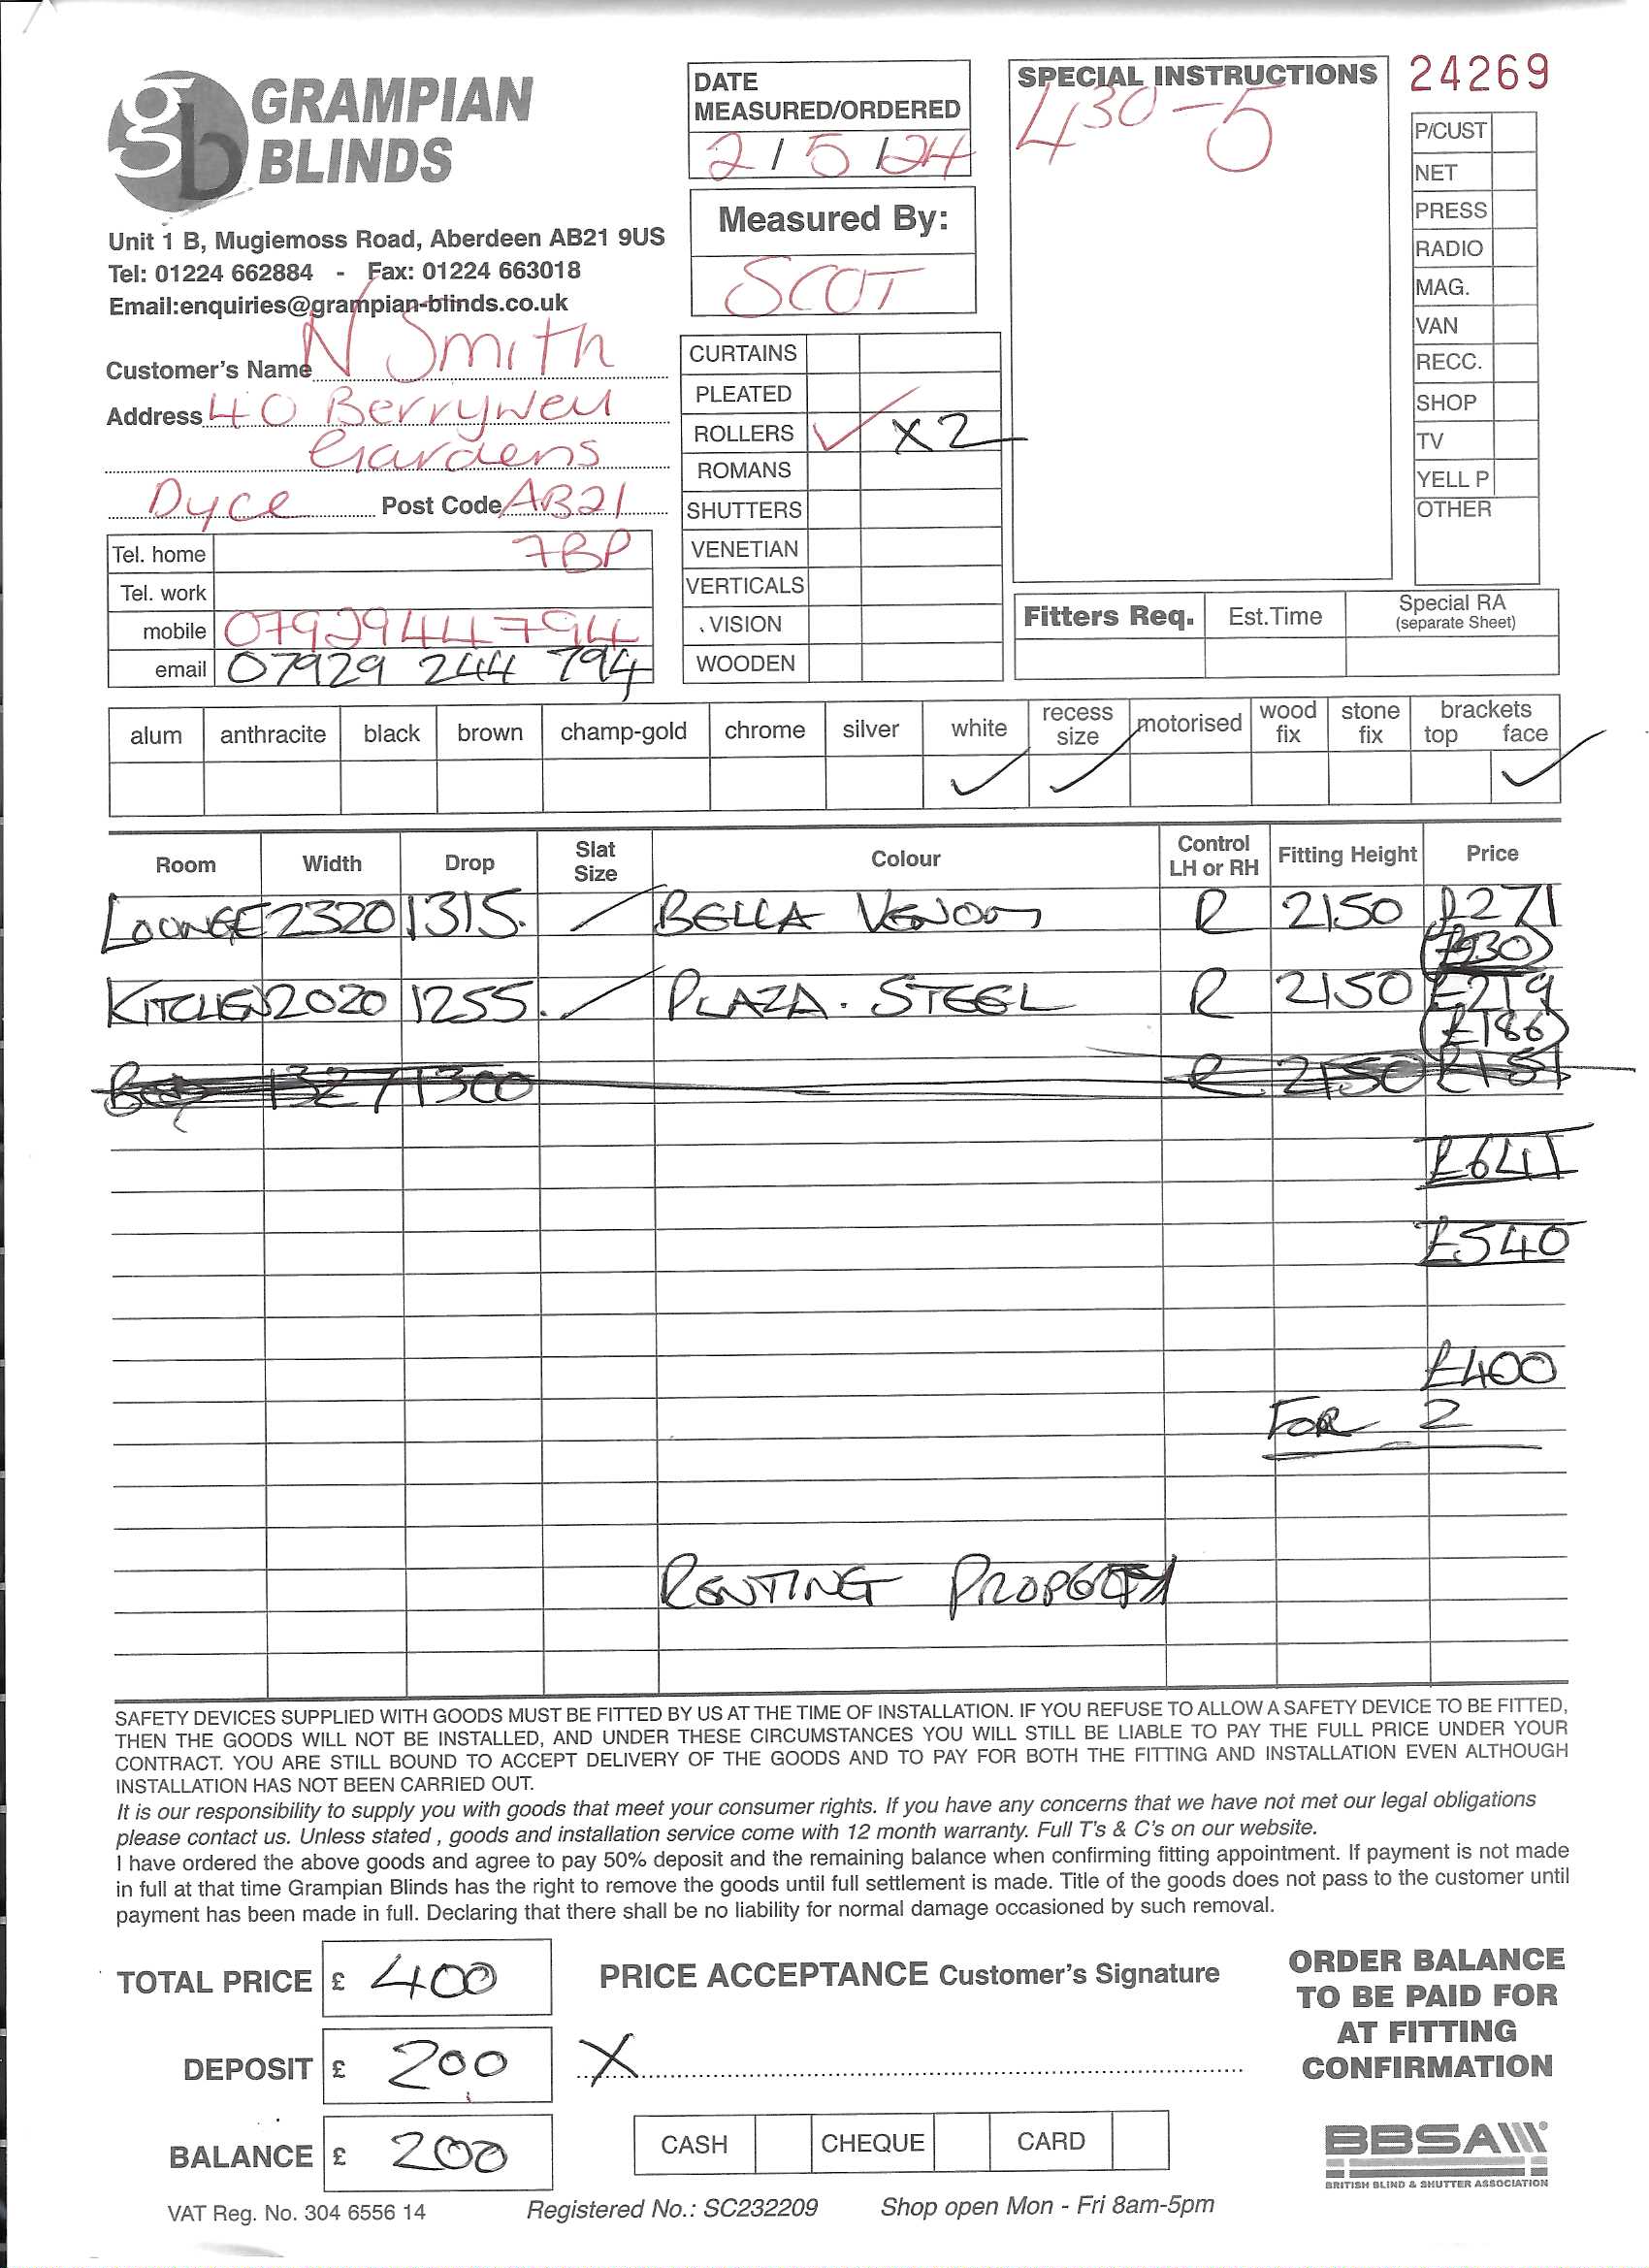 GRAMPIAN
BLINDS
Unit 1 B, Mugiemoss Road, Aberdeen AB21 9US
Tel: 01224 662884 - Fax: 01224 663018
Email:enquiries@grampian-blinds.co.uk
Customer's Name N Smith
Address 40 Berrywell
Gardens
Dyce Post Code AB21
Tel. home 7BP
Tel. work
mobile 07929447794
email 07929 244 794
DATE
MEASURED/ORDERED
2/5/24
Measured By:
SCOT
CURTAINS
PLEATED
ROLLERS ✓ X2
ROMANS
SHUTTERS
VENETIAN
VERTICALS
VISION
WOODEN
SPECIAL INSTRUCTIONS
430-5
24269
P/CUST
NET
PRESS
RADIO
MAG.
VAN
RECC.
SHOP
TV
YELL P
OTHER
Fitters Req. Est.Time Special RA
(separate Sheet)
alum anthracite black brown champ-gold chrome silver white recess size motorised wood fix stone fix brackets top face
✓ ✓ ✓
Room Width Drop Slat Size Colour Control LH or RH Fitting Height Price
LOUNGE 2320 1315. / BELLA R 2150 £271
KITCHEN 2020 1255. / PLAZA. STEEL R 2150 £219
(£186)
1327 1300 R 2150
£641
£540
£400
FOR 2
RENTING PROPERTY
SAFETY DEVICES SUPPLIED WITH GOODS MUST BE FITTED BY US AT THE TIME OF INSTALLATION. IF YOU REFUSE TO ALLOW A SAFETY DEVICE TO BE FITTED,
THEN THE GOODS WILL NOT BE INSTALLED, AND UNDER THESE CIRCUMSTANCES YOU WILL STILL BE LIABLE TO PAY THE FULL PRICE UNDER YOUR
CONTRACT. YOU ARE STILL BOUND TO ACCEPT DELIVERY OF THE GOODS AND TO PAY FOR BOTH THE FITTING AND INSTALLATION EVEN ALTHOUGH
INSTALLATION HAS NOT BEEN CARRIED OUT.
It is our responsibility to supply you with goods that meet your consumer rights. If you have any concerns that we have not met our legal obligations
please contact us. Unless stated , goods and installation service come with 12 month warranty. Full T's & C's on our website.
I have ordered the above goods and agree to pay 50% deposit and the remaining balance when confirming fitting appointment. If payment is not made
in full at that time Grampian Blinds has the right to remove the goods until full settlement is made. Title of the goods does not pass to the customer until
payment has been made in full. Declaring that there shall be no liability for normal damage occasioned by such removal.
TOTAL PRICE £ 400
DEPOSIT £ 200
BALANCE £ 200
PRICE ACCEPTANCE Customer's Signature
X
CASH CHEQUE CARD
ORDER BALANCE
TO BE PAID FOR
AT FITTING
CONFIRMATION
BBSA
BRITISH BLIND & SHUTTER ASSOCIATION
VAT Reg. No. 304 6556 14 Registered No.: SC232209 Shop open Mon - Fri 8am-5pm